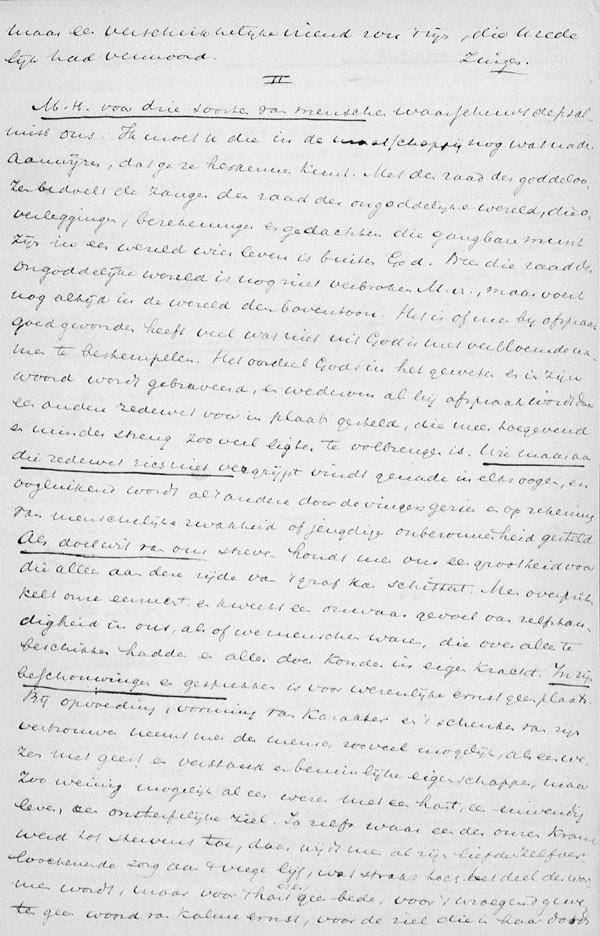 maar een verschrikkelijke vriend van 't rijs, die wrede
lijk had vermoord. Zingen.
II
M.H. voor drie soorten van menschen waarschuwt de psal-
mist ons. Ik moet u die in de maatschappij nog wat nader
aanwijzen, dat ge ze herkennen kunt. Met den raad der goddeloo-
zen bedoelt de zanger den raad der ongoddelijke wereld, die o-
verleggingen, berekeningen en gedachten die gangbare munt
zijn in een wereld wier leven is buiten God. En die raad der
ongoddelijke wereld is nog niet verbroken M.H., maar voert
nog altijd in de wereld den boventoon. Het is of men bij afspraak
goed gevonden heeft veel wat niet uit God is met verbloemde na-
men te bestempelen. Het oordeel Gods in het geweten en in Zijn
woord wordt gebraveerd, en wederom al bij afspraak wordt dan
een andere zedewet voor in plaats gesteld, die meer toegevend
en minder streng zooveel ligter te volbrengen is. Wie maar aan
die zedewet zich niet vergrijpt vindt genade in elks oogen, en
oogluikend wordt al 't andere door de vingers gezien en op rekening
van menschelijke zwakheid of jeugdige onberadenheid gesteld.
Als doelwit van ons streven houdt men ons een grootheid voor
die alleen aan deze zijde van 't graf kan schitteren. Men overprik-
kelt onze eerzucht en kweekt een onwaar gevoel van zelfstan-
digheid in ons, als of we menschen waren, die over alles te
beschikken hadden en alles doen konden in eigen kracht. In zijn
beschouwingen en gesprekken is voor wezenlijke ernst geen plaats.
Bij opvoeding, vorming van karakter en 't schenken van zijn
vertrouwen neemt men den mensch zooveel mogelijk, als een we-
zen met geest en verstand en beminlijke eigenschappen, maar
zoo weinig mogelijk als een wezen met een hart, een inwendig
leven, een onsterfelijke ziel. Ja zelfs waar een der onzen krank
werd tot stervens toe, daar wijdt men al zijn liefde zelfver-
loochenende zorg aan 't vege lijf, wat straks toch het deel der wor-
men wordt, maar voor 't hart geen bede, voor 't wroegend gewe-
ten geen woord van kalmen ernst, voor de ziel die in haar doods